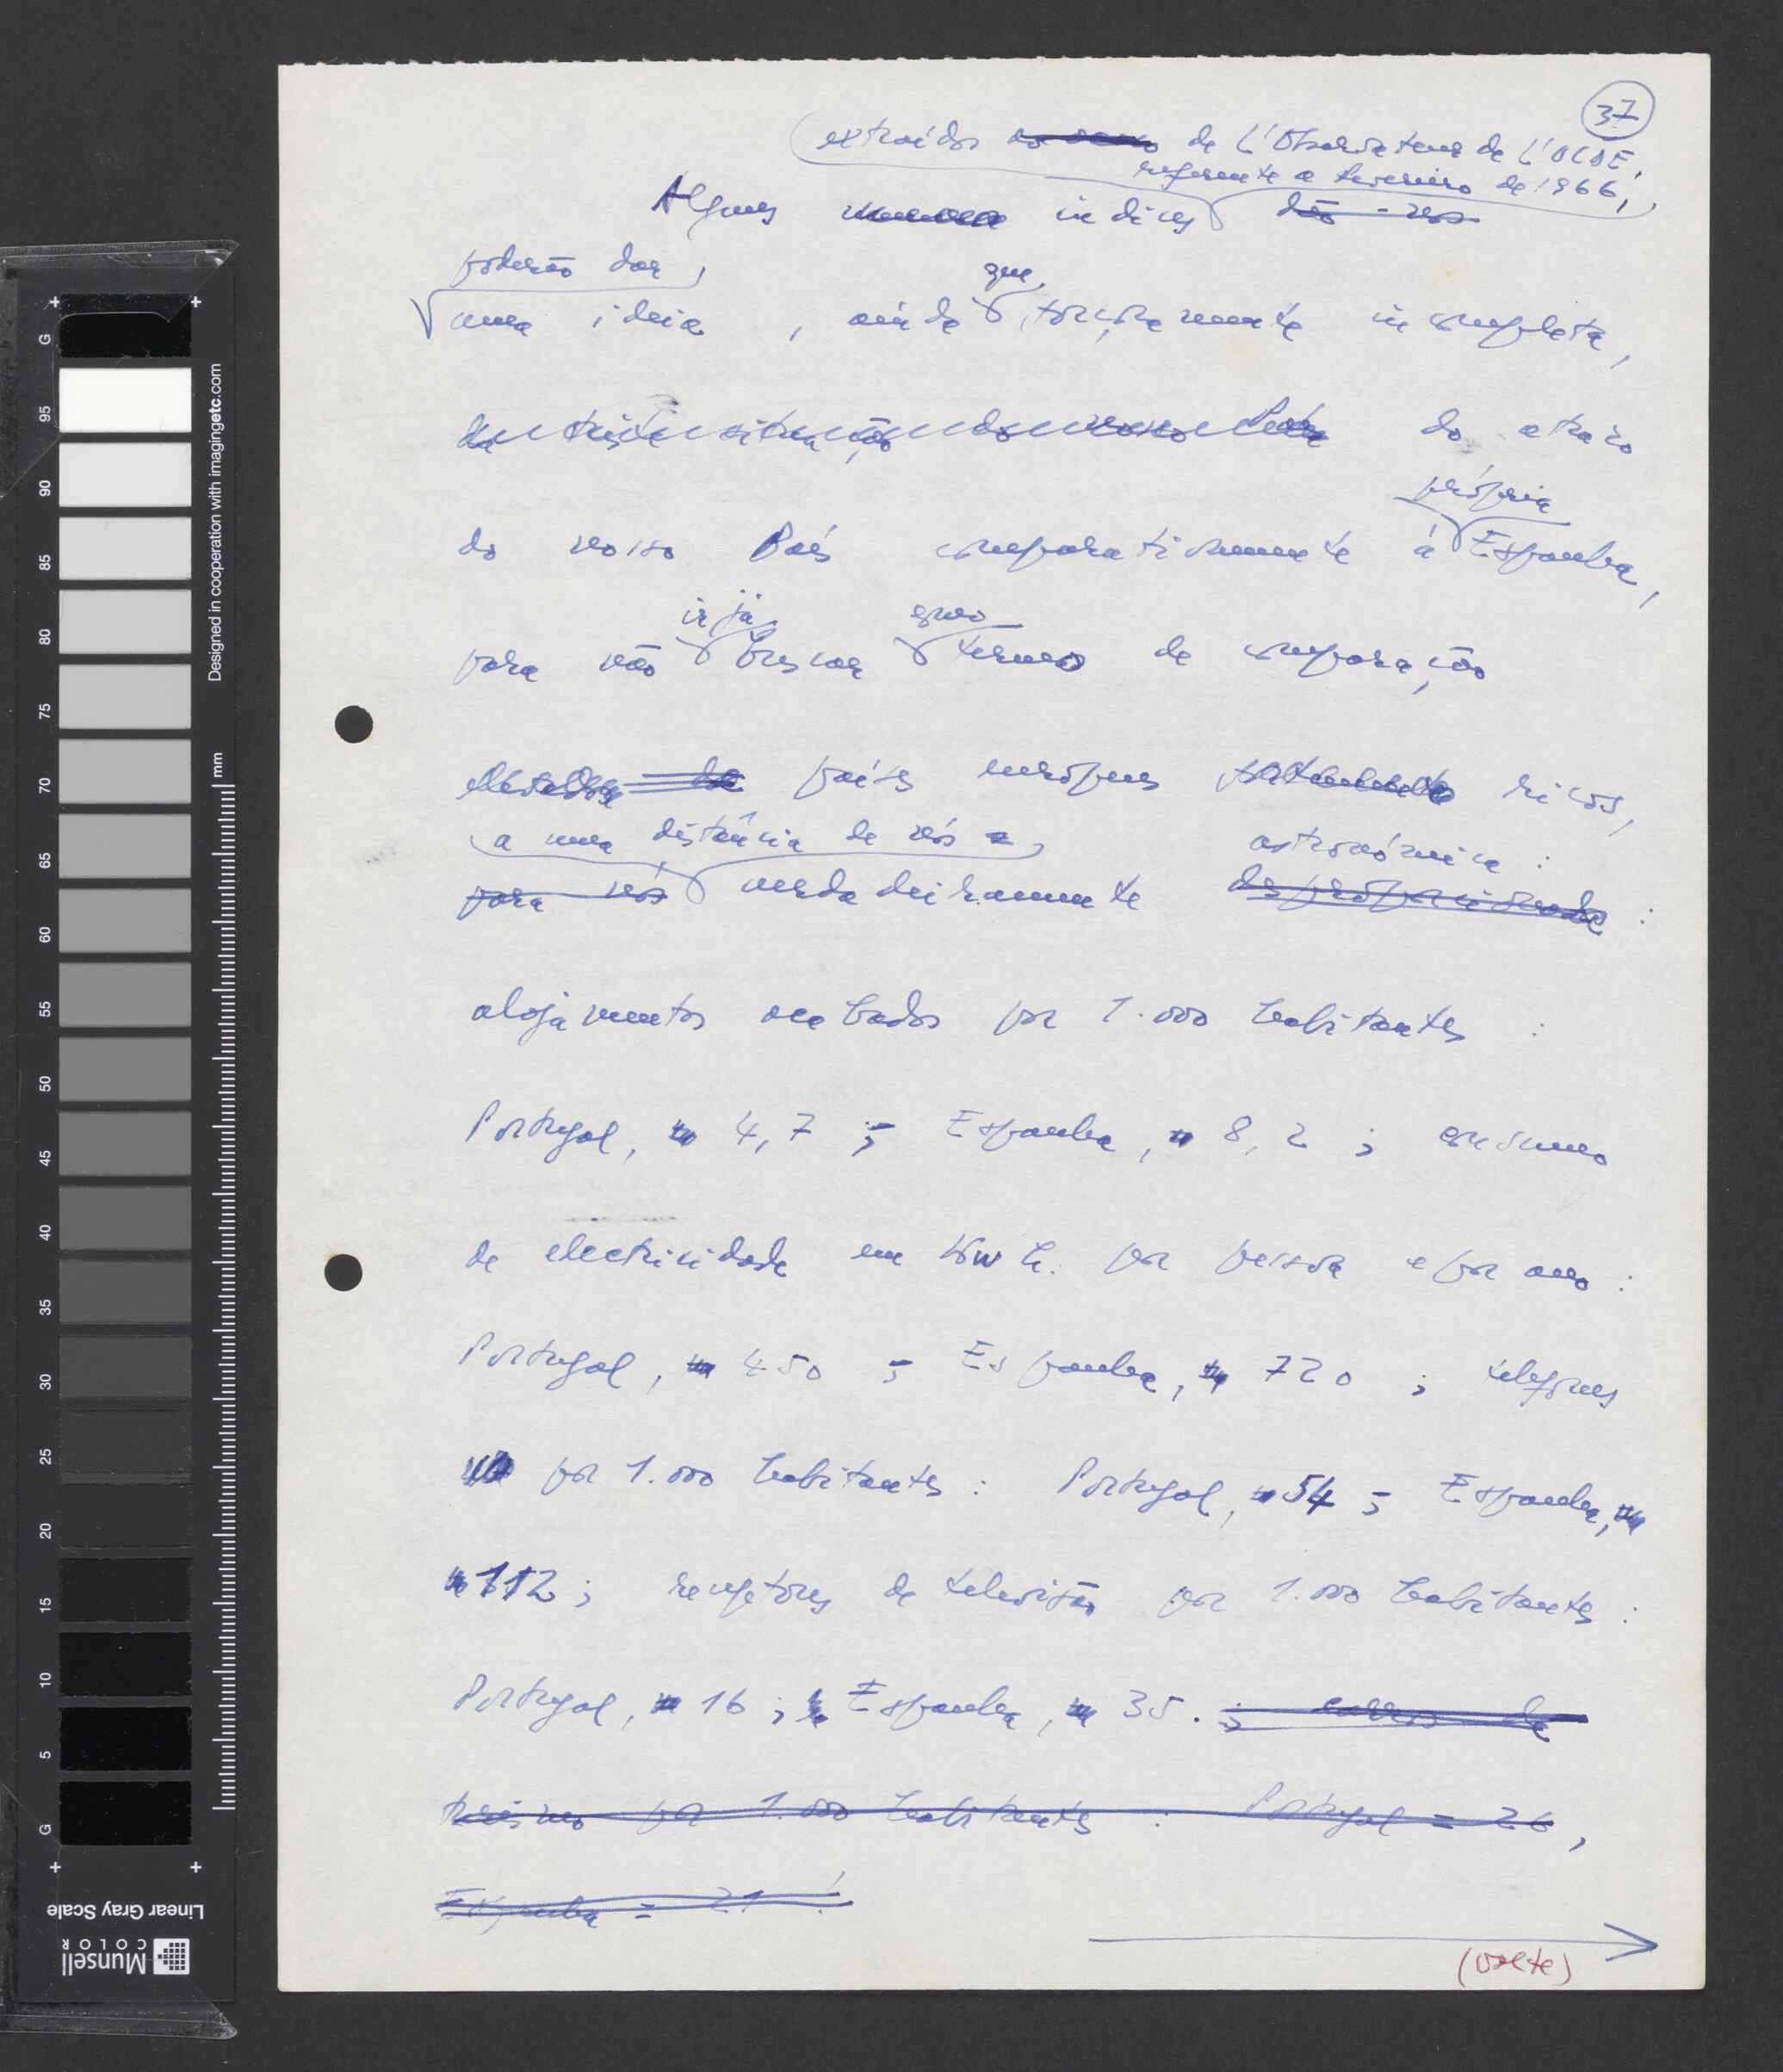 37
extraídos de L'Observateur de L'OCDE,
referente a Fevereiro de 1966,
Alguns índices dão-nos
poderão dar
que
uma ideia, ainda forçosamente incompleta,
da triste situação do nosso País do atraso
própria
do nosso País comparativamente à Espanha,
ir já como
para não buscar termo de comparação
países europeus ricos,
a uma distância de nós astronómica :
para nós verdadeiramente desproporcionada :
alojamentos acabados por 1.000 habitantes :
Portugal, 4,7 ; Espanha, 8,2 ; consumo
de electricidade em KWh. por pessoa e por ano :
Portugal, 450 ; Espanha, 720 ; telefones
por 1.000 habitantes : Portugal, 54 ; Espanha,
112 ; receptores de televisão por 1.000 habitantes :
Portugal, 16 ; Espanha, 35. ; carros de
turismo por 1.000 habitantes : Portugal = 26,
Espanha = 21 !
(volte)
Designed in cooperation with imagingetc.com
mm
G 95 90 85 80 75 70 65 60 55 50 45 40 35 30 25 20 15 10 5 G
Linear Gray Scale
Munsell
COLOR